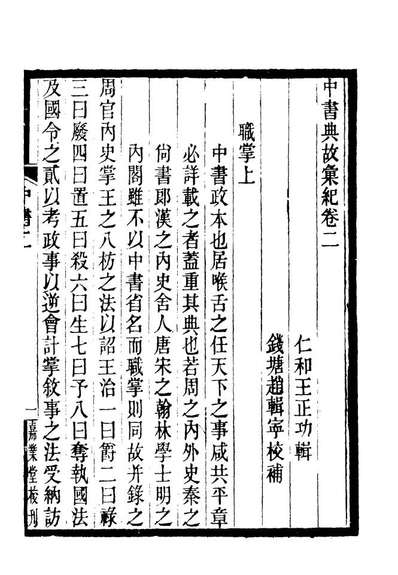 中書典故彙紀卷二
仁和王正功輯
錢塘趙輯寧校補
職掌上
中書政本也居喉舌之任天下之事咸共平章
必詳載之者葢重其典也若周之內外史秦之
尙書郎漢之內史舍人唐宋之翰林學士明之
內閣雖不以中書省名而職掌則同故并錄之
周官內史掌王之八枋之法以詔王治一曰爵二曰祿
三曰廢四曰置五曰殺六曰生七曰予八曰奪執國法
及國令之貳以考政事以逆會計掌敘事之法受納訪
中書二
一
嘉業堂校刊